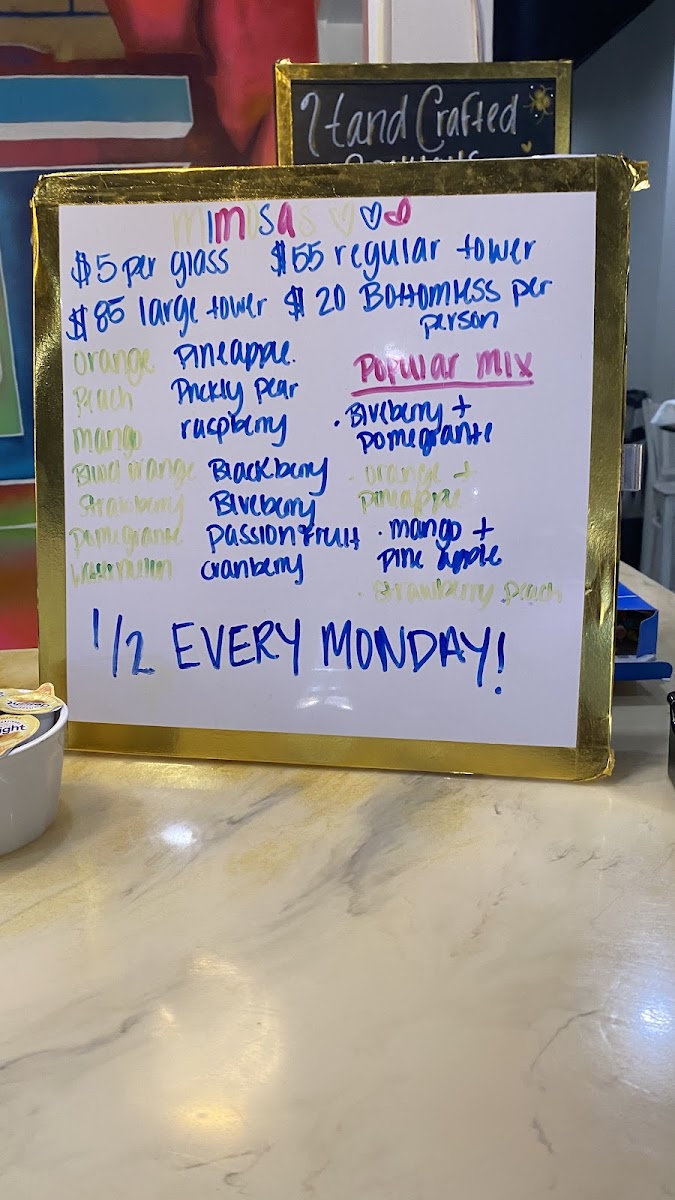 Hand Crafted
mimisas
$5 per glass $55 regular tower
$85 large tower $20 Bottomless per person
orange
Peach
mango
Blood orange
Strawberry
pomegrante
watermelon
Pineapple.
Prickly pear
raspberry
Blackberry
Blueberry
passionfruit
cranberry
Popular mix
· Blueberry +
pomegrante
· orange +
pineapple
· mango +
pine apple
· Strawberry peach
1/2 EVERY MONDAY!
ight